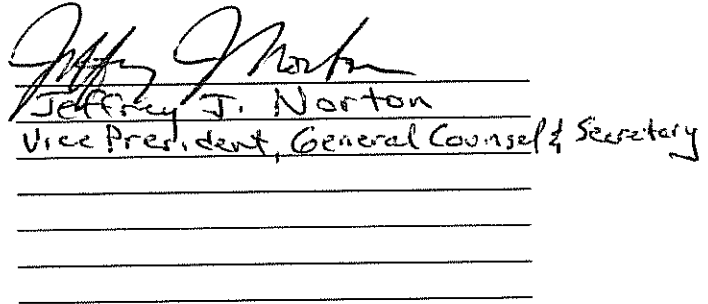 Jeffrey J Norton
Jeffrey J. Norton
Vice President, General Counsel & Secretary